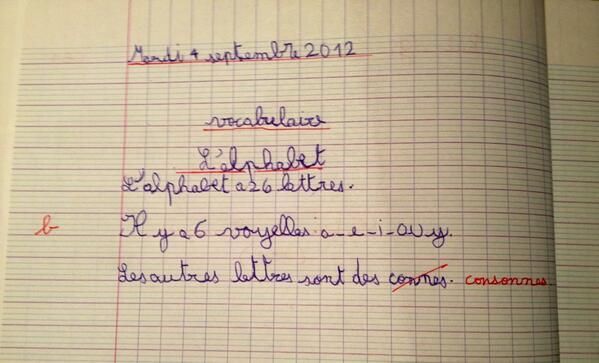 Mardi 4 septembre 2012
vocabulaire
L'alphabet
L'alphabet a 26 lettres.
b Il y a 6 voyelles : a_e_i_o u y.
Les autres lettres sont des connes. consonnes.